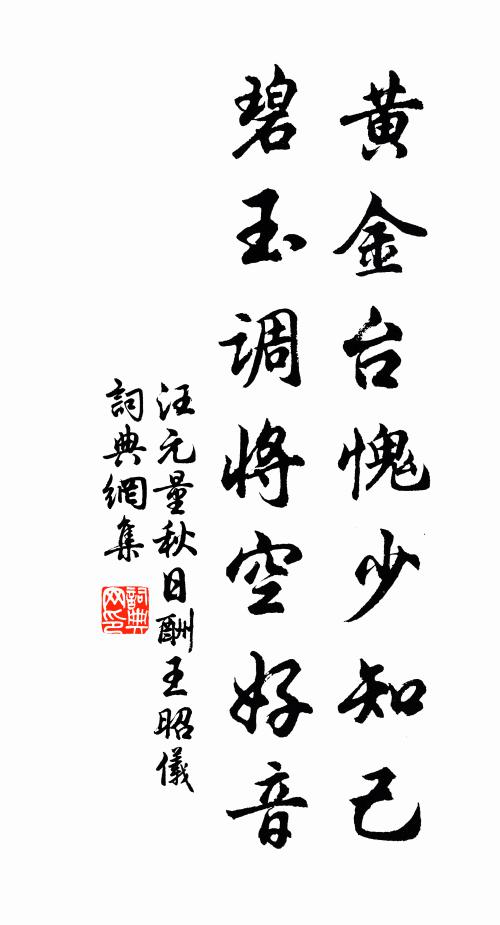 黄金台愧少知己
碧玉調將空好音
汪元量秋日酬王昭儀
詞典網集
詞典网印